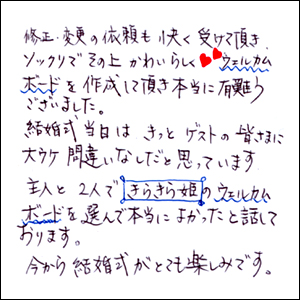 修正・変更の依頼も快く受けて頂き
ソックリでその上かわいらしくウェルカム
ボードを作成して頂き本当に有難う
ございました。
結婚式当日はきっとゲストの皆さまに
大ウケ間違いなしだと思っています
主人と2人できらきら姫のウェルカム
ボードを選んで本当によかったと話して
おります。
今から結婚式がとても楽しみです。